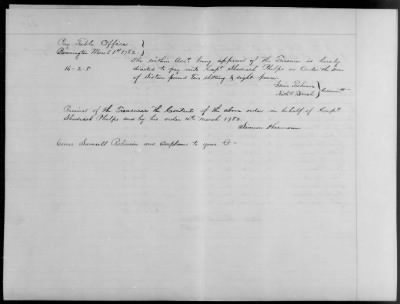 Pay Table Office
Bennington March 1st 1782
The within Acct being approved of the Treasurer is hereby
16-2-8 directed to pay unto Capt Shadrach Phelps or Order the sum
of Sixteen pounds two shilling & eight pence.
Committe
Received of the Treasurer the Contents of the above order in behalf of Capt
Shadrach Phelps and by his order 4th March 1782.
Simeon
Samuell Robinson and